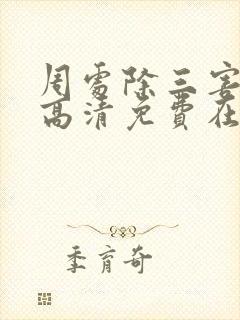 周處除三害
高清免費在
季育奇